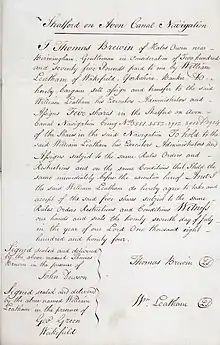 Stratford on Avon Canal Navigation
I Thomas Brewin of Hales Owen near
Birmingham, Gentleman in Consideration of Two hundred
and seventy five Pounds paid to me by William
Leatham of Wakefield, Yorkshire, Banker Do
hereby bargain sell assign and transfer to the said
William Leatham his Executors Administrators and
Assigns Five shares in the Stratford on Avon
Canal Navigation being
of the Shares in the said Navigation To hold to the
said William Leatham his Executors Administrators and
Assigns subject to the same Rules Orders and
Restrictions and on the same Conditions that I held the
same immediately before the execution hereof And I
the said William Leatham do hereby agree to take and
accept of the said five shares subject to the same
Rules Orders Restrictions and Conditions Witness
our hands and seals the twenty seventh day of July
in the year of our Lord One thousand eight
hundred and forty four.
Signed sealed and delivered
by the above named Thomas
Brewin in the presence of
John
Thomas Brewin
Signed sealed and delivered
by the above named William
Leatham in the presence of
Geo Green
Wakefield
Wm Leatham